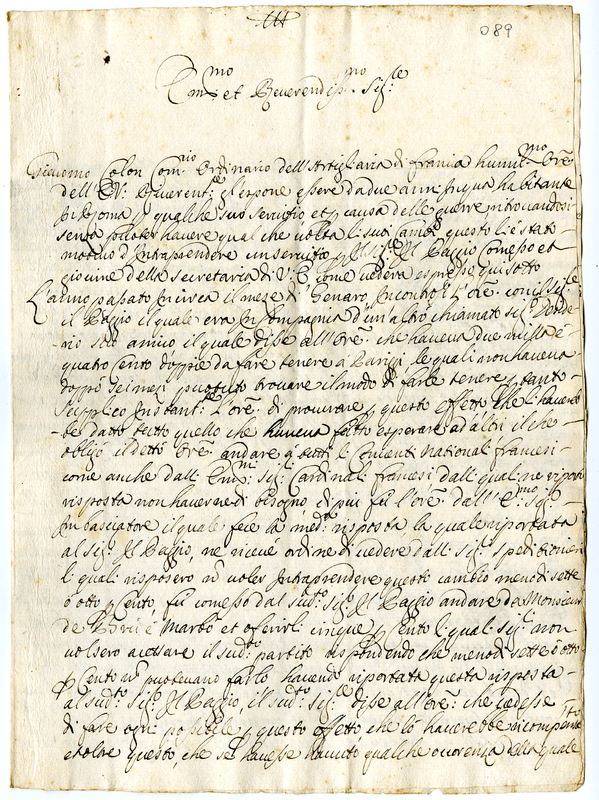 089
Em.mo et Reverendis.mo Sig.le
Giacomo Colon Com.rio Ordinario dell'Artigliaria di francia humil.mo Ore
dell' E.V. Riverent.e l'espone essere da due anni in qua habitante
in Roma p qualche suo servitio et p causa delle guerre ritrovandosi
senza potter havere qualche volta li suoi Cambi questo li è stato
motivo d'Intraprendere un servitio p il sig.e Il Baggio Comesso et
giovine della secretaria di V. E. come vedera espresse qui sotto
L'anno passato in circa il mese di Genaro, Incontrò l'Ore. con il sig.le
il Baggio il quale era in Compagnia d'un altro chiamato sig.
suo amico il quale disse all'Ore. che haveva due milla e
quatro Cento doppie da fare tenere à Pariggi, le quali non haveva
doppò sei mesi possuto trovare il modo di farle tenere p tanto
suplico Instant.e L'ore. di procurare p questo effetto che li haverebbe
dato tutto quello che haveva fatto esperare ad altri il che
obligò il detto Ore. andare p tutti le Conlenti National francesi
come anche dalli Em.mi sig. Cardinali francesi dalli quali ne riportò
risposta non haverne di bisogno di piu fù l'ore. dall' E.mo sig.
Imbasciatore il quale fece la med.ma risposta, la quale riportata
al sig. Il Baggio, ne ricevé ordine di vedere dalli sig. speditionieri
li quali risposero nō voler Intraprendere questo cambio meno di sette
ò otto p Cento, fù comesso dal sud.to sig. Il Baggio andare da Monsieur
de et oferirli cinque p Cento li quali sig. non
volsero accettare il sud.to partito rispondendo che meno di sette ò otto
p Cento nō potevano farlo havendo riportata questa risposta
al sud.to sig. Il Baggio, il sud.to sig.le disse all'ore. che vedesse
di fare ogni possibile p questo effetto, che lo haverebbe ricompensato
et oltre questo, che se havesse havuto qualche ocorenza della quale